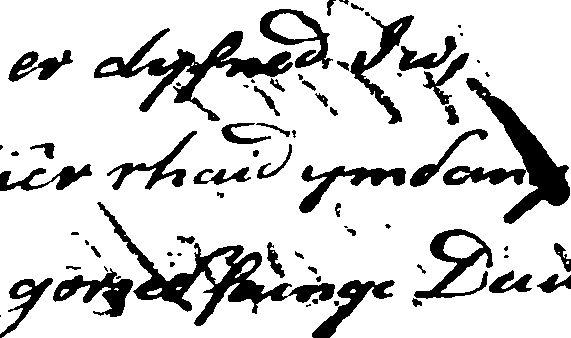 er dyfned Iw,
iêr rhaid ymdan
gorsedfaingc Duw